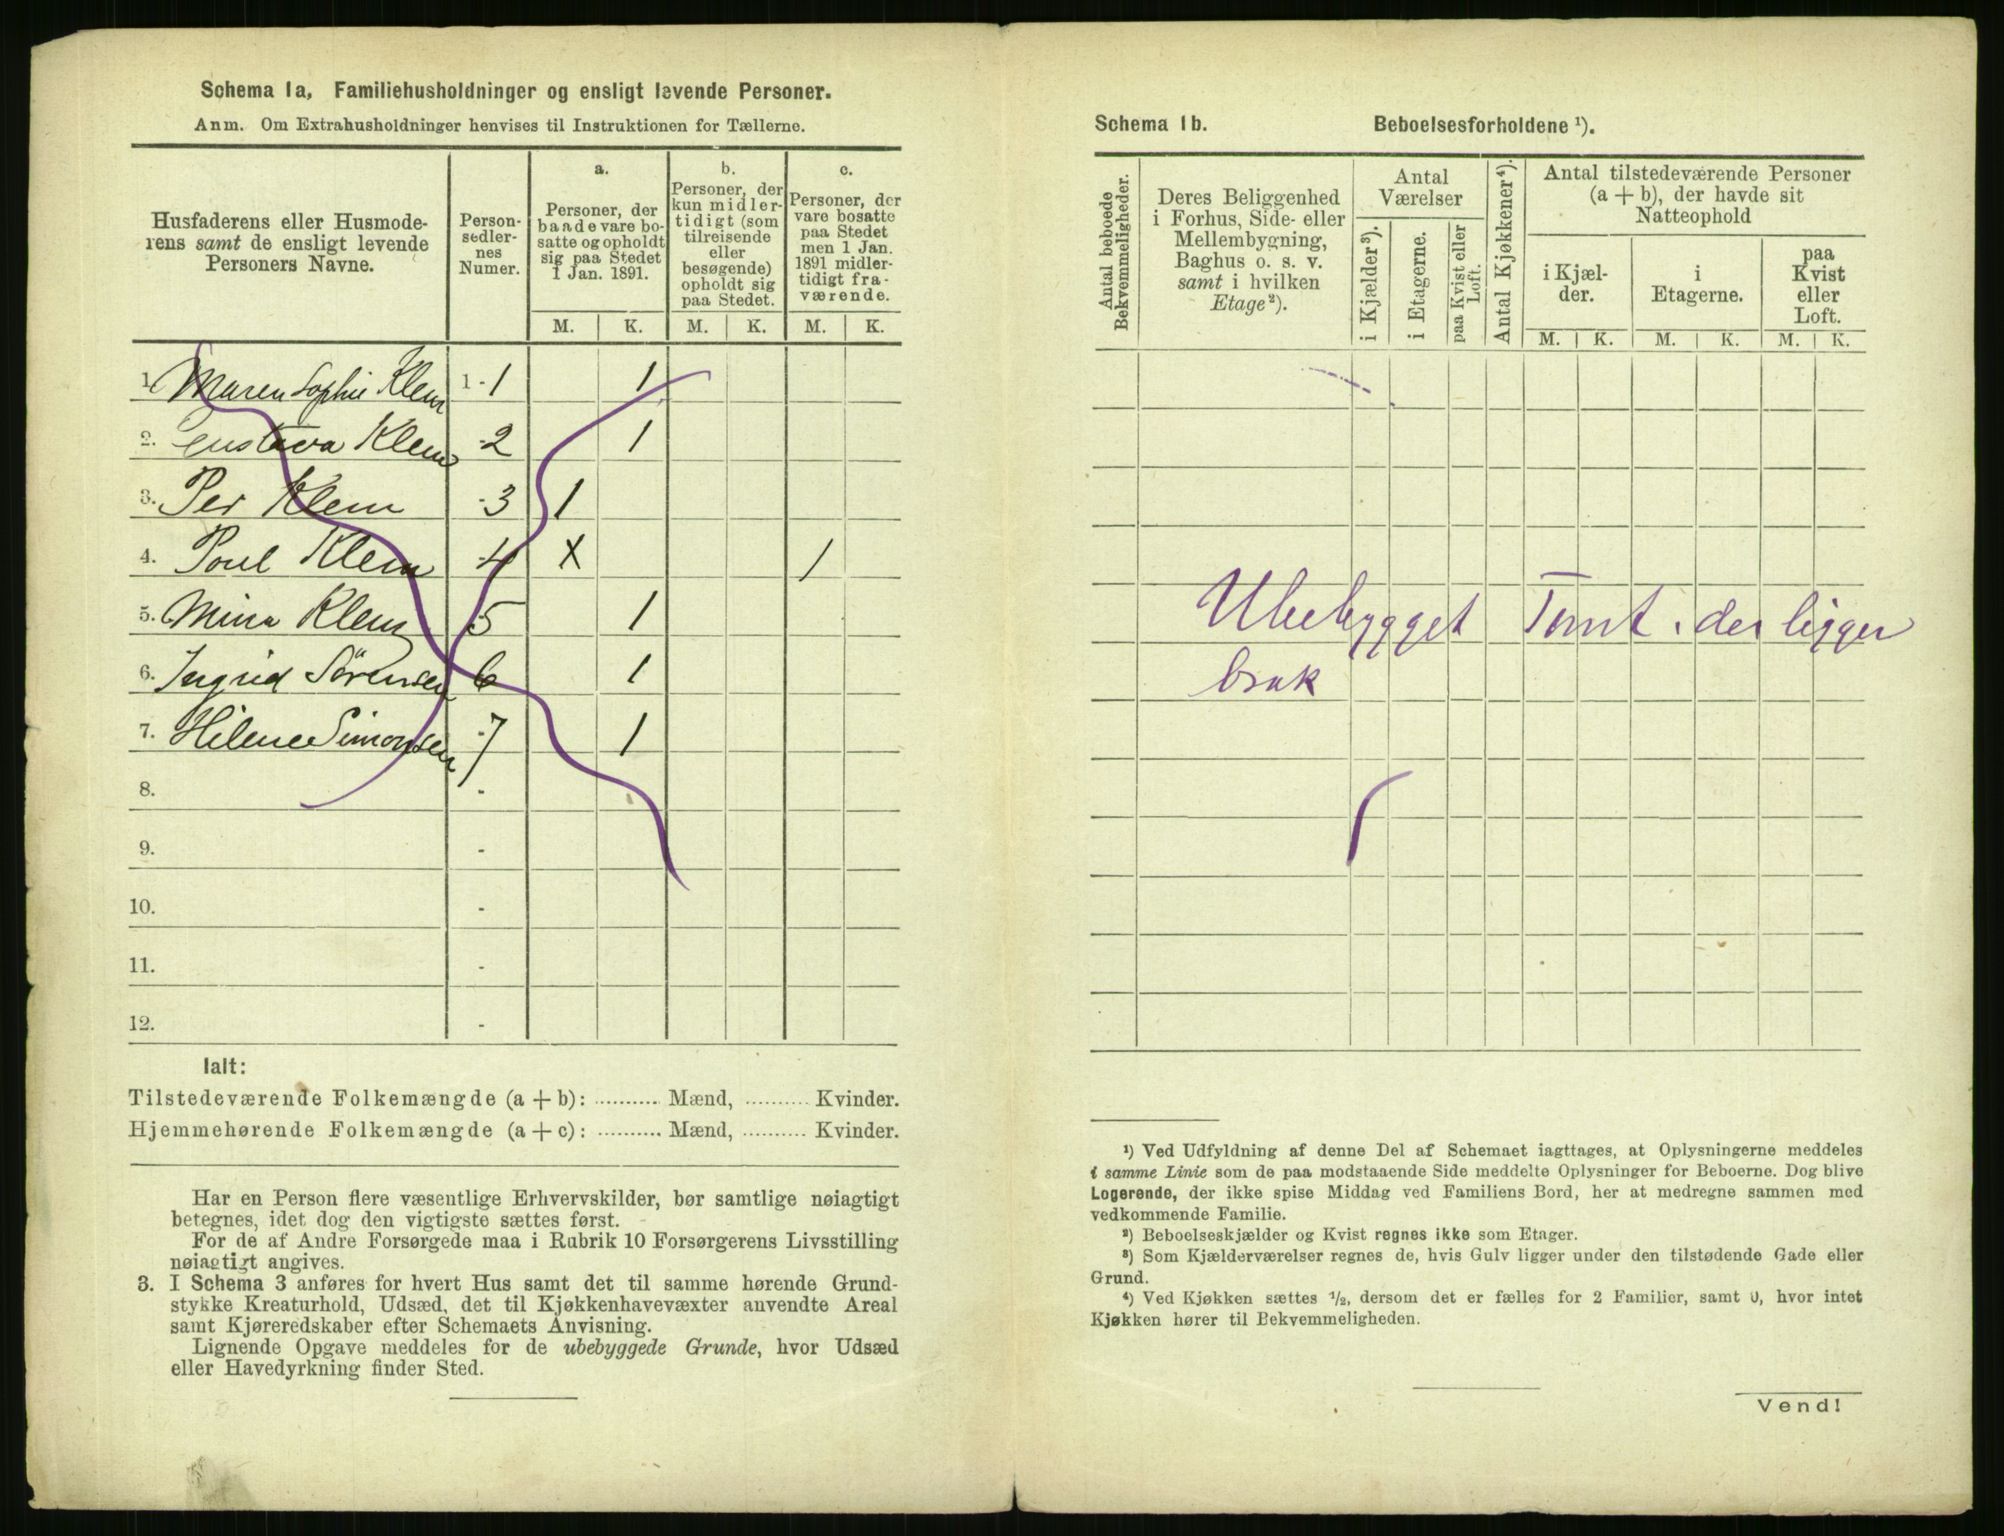 Schema 1a, Familiehusholdninger og ensligt levende Personer.
Anm. Om Extrahusholdninger henvises til Instruktionen for Tællerne.
Husfaderens eller Husmode-
rens samt de ensligt levende
Personers Navne.
Person-
sedler-
nes
Numer.
a.
Personer, der
baade vare bo-
satte og opholdt
sig paa Stedet
1 Jan. 1891.
b.
Personer, der
kun midler-
tidigt (som
tilreisende
eller
besøgende)
opholdt sig
paa Stedet.
c.
Personer, der
vare bosatte
paa Stedet
men 1 Jan.
1891 midler-
tidigt fra-
værende.
M. K. M. K. M. K.
1. Maren Sophie Klem 1 - 1 1
2. Gustava Klem - 2 1
3. Per Klem - 3 1
4. Poul Klem - 4 X 1
5. Mina Klem 5 1
6. Ingrid Sörensen 6 1
7. Hilene Simonsen - 7 1
8. -
9. -
10. -
11. -
12. -
Ialt:
Tilstedeværende Folkemængde (a + b): .......... Mænd, .......... Kvinder.
Hjemmehørende Folkemængde (a + c): .......... Mænd, .......... Kvinder.
Har en Person flere væsentlige Erhvervskilder, bør samtlige nøiagtigt
betegnes, idet dog den vigtigste sættes først.
For de af Andre Forsørgede maa i Rubrik 10 Forsørgerens Livsstilling
nøiagtigt angives.
3. I Schema 3 anføres for hvert Hus samt det til samme hørende Grund-
stykke Kreaturhold, Udsæd, det til Kjøkkenhavevæxter anvendte Areal
samt Kjøreredskaber efter Schemaets Anvisning.
Lignende Opgave meddeles for de ubebyggede Grunde, hvor Udsæd
eller Havedyrkning finder Sted.
Schema 1b. Beboelsesforholdene ¹).
Antal beboede
Bekvemmeligheder.
Deres Beliggenhed
i Forhus, Side- eller
Mellembygning,
Baghus o. s. v.
samt i hvilken
Etage ²).
Antal
Værelser
i Kjælder ³).
i Etagerne.
paa Kvist eller
Loft.
Antal Kjøkkener ⁴).
Antal tilstedeværende Personer
(a + b), der havde sit
Natteophold
i Kjæl-
der.
i
Etagerne.
paa
Kvist
eller
Loft.
M. K. M. K. M. K.
Ubebygget Tomt. der ligger
brak
¹) Ved Udfyldning af denne Del af Schemaet iagttages, at Oplysningerne meddeles
i samme Linie som de paa modstaaende Side meddelte Oplysninger for Beboerne. Dog blive
Logerende, der ikke spise Middag ved Familiens Bord, her at medregne sammen med
vedkommende Familie.
²) Beboelseskjælder og Kvist regnes ikke som Etager.
³) Som Kjælderværelser regnes de, hvis Gulv ligger under den tilstødende Gade eller
Grund.
⁴) Ved Kjøkken sættes ½, dersom det er fælles for 2 Familier, samt 0, hvor intet
Kjøkken hører til Bekvemmeligheden.
Vend!